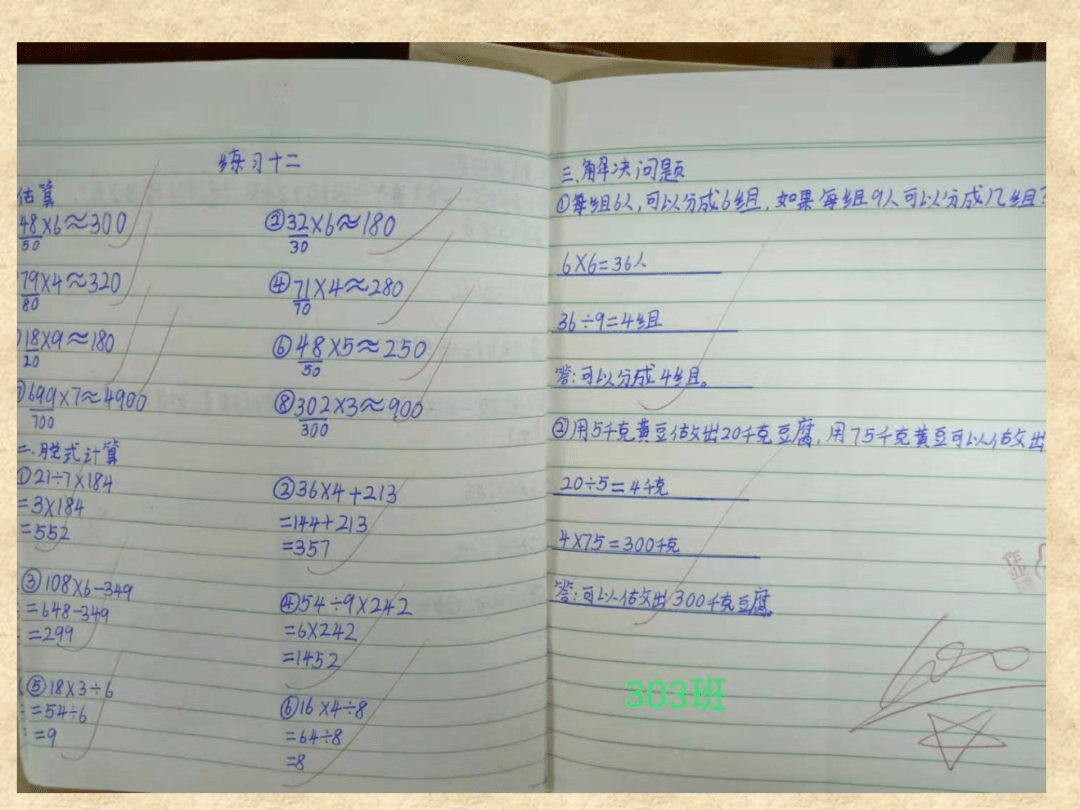 练习十二
估算
48×6≈300
50
②32×6≈180
30
79×4≈320
80
④71×4≈280
70
18×9≈180
20
⑥48×5≈250
50
699×7≈4900
700
⑧302×3≈900
300
二.脱式计算
①21÷7×184
=3×184
=552
②36×4+213
=144+213
=357
③108×6-349
=648-349
=299
④54÷9×242
=6×242
=1452
⑤18×3÷6
=54÷6
=9
⑥16×4÷8
=64÷8
=8
三.解决问题
①每组6人,可以分成6组,如果每组9人可以分成几组?
6×6=36人
36÷9=4组
答:可以分成4组。
②用5千克黄豆做出20千克豆腐,用75千克黄豆可以做出
20÷5=4千克
4×75=300千克
答:可以做出300千克豆腐
100
303班